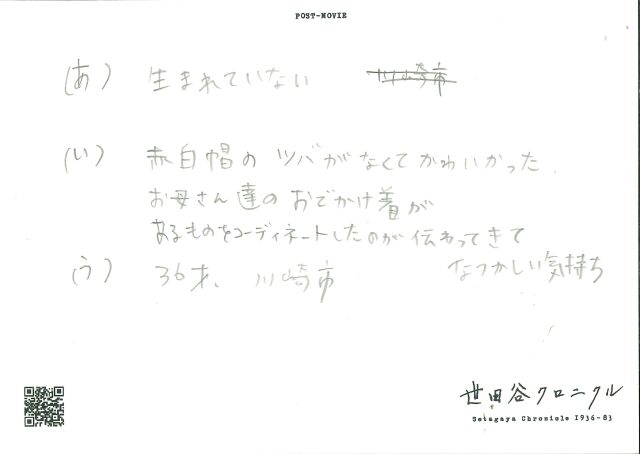 POST-MOVIE
(あ) 生まれていない 川崎市
(い) 赤白帽のツバがなくてかわいかった.
お母さん達のおでかけ着が
あるものをコーディネートしたのが伝わってきて
なつかしい気持ち
(う) 36才、川崎市
世田谷クロニクル
Setagaya Chronicle 1936-83